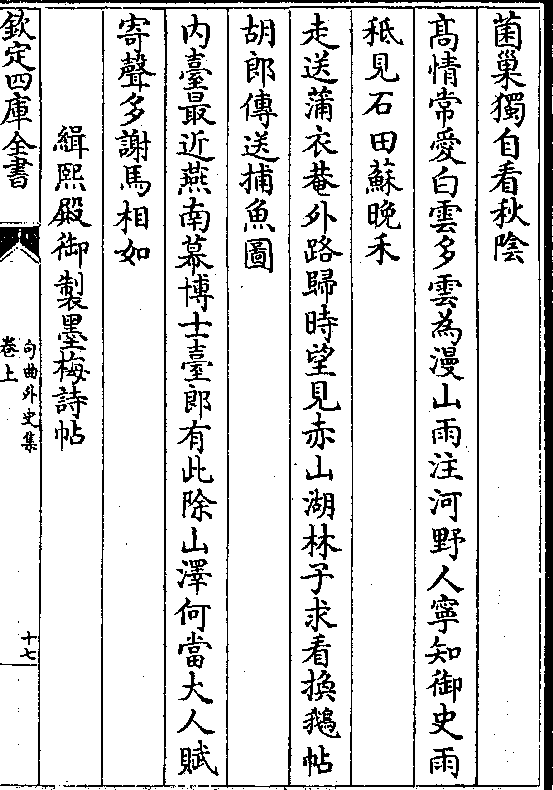 菌巢獨自看秋陰
髙情常愛白雲多雲為漫山雨注河野人寧知御史雨
秪見石田蘇晚禾
走送蒲衣菴外路歸時望見赤山湖林子求看換鵞帖
胡郎傳送捕魚圖
内臺最近燕南幕博士臺郎有此除山澤何當大人賦
寄聲多謝馬相如
緝熙殿御製墨梅詩帖
欽定四庫全書
句曲外史集
卷上
十七